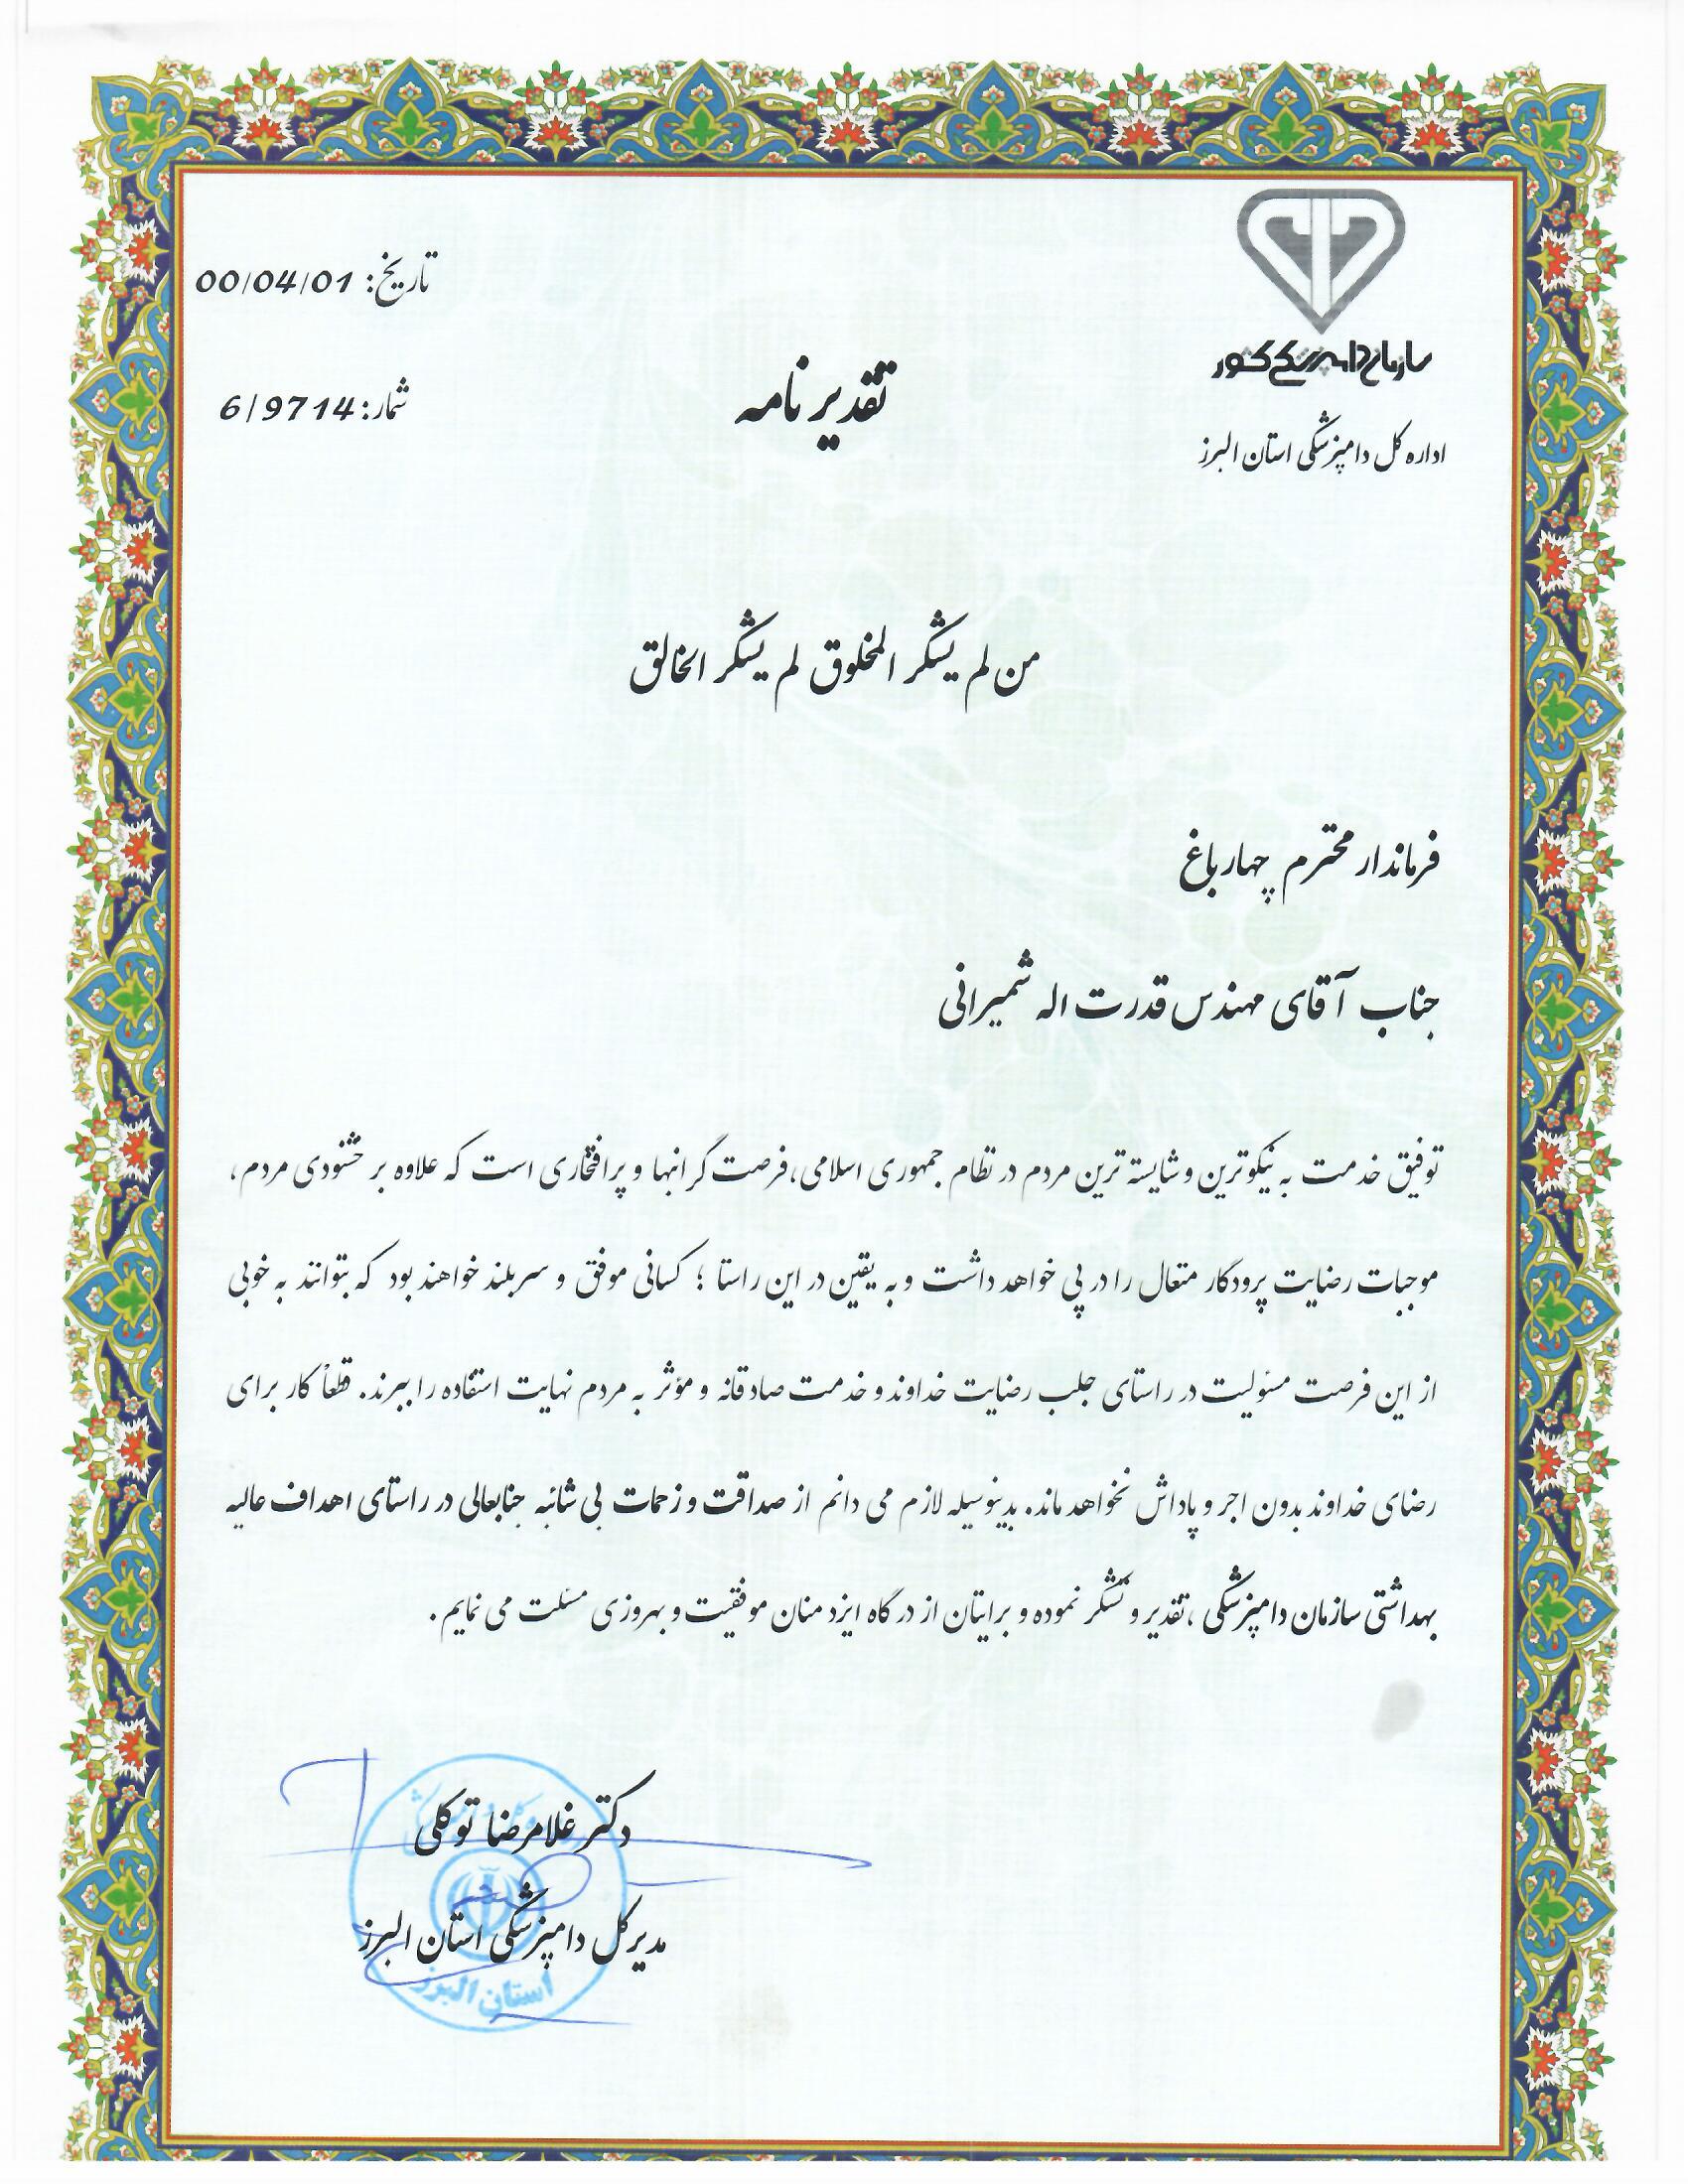 سازمان دامپزشکی کشور
اداره کل دامپزشکی استان البرز
تاریخ: 00/04/01
شمار: 6/9714
تقدیر نامه
من لم یشکر المخلوق لم یشکر الخالق
فرماندار محترم چهارباغ
جناب آقای مهندس قدرت اله شمیرانی
توفیق خدمت به نیکوترین و شایسته ترین مردم در نظام جمهوری اسلامی،فرصت گرانبها و پرافتخاری است که علاوه بر خشنودی مردم،
موجبات رضایت پرودگار متعال را در پی خواهد داشت و به یقین در این راستا ؛ کسانی موفق و سربلند خواهند بود که بتوانند به خوبی
از این فرصت مسئولیت در راستای جلب رضایت خداوند و خدمت صادقانه و مؤثر به مردم نهایت استفاده را ببرند. قطعاً کار برای
رضای خداوند بدون اجر و پاداش نخواهد ماند. بدینوسیله لازم می دانم از صداقت و زحمات بی شائبه جنابعالی در راستای اهداف عالیه
بهداشتی سازمان دامپزشکی ،تقدیر و تشکر نموده و برایتان از درگاه ایزد منان موفقیت و بهروزی مسئلت می نمایم .
دکتر غلامرضا توکلی
مدیرکل دامپزشکی استان البرز
استان البرز